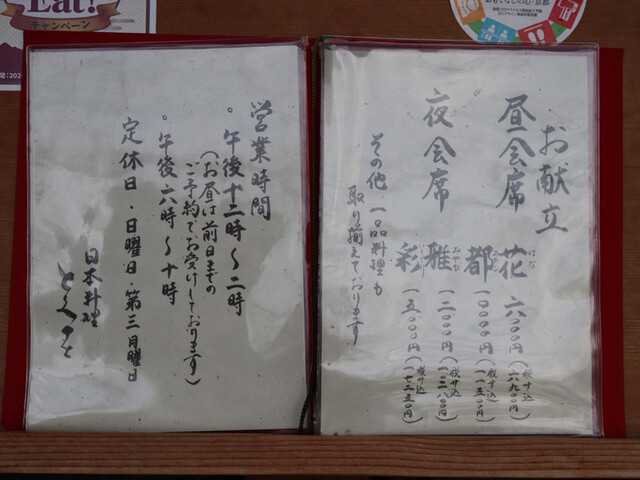 お献立
昼会席 花 六〇〇〇円(税サ込 六九〇〇円)
はな
都 一〇〇〇〇円(税サ込 一一五〇〇円)
夜会席 雅 一二〇〇〇円(税サ込 一三八〇〇円)
みやび
彩 一五〇〇〇円(税サ込 一七二五〇円)
その他、一品料理も
取り揃えております
営業時間
。午後十二時〜二時
(お昼は前日までの
ご予約でお受けしております)
。午後六時〜十時
定休日・日曜日・第三月曜日
日本料理
Eat!
キャンペーン